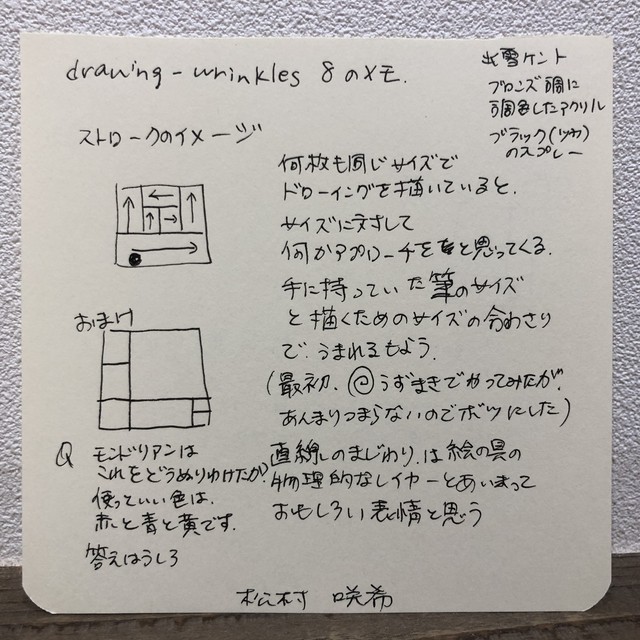 drawing - wrinkles 8 のメモ.
北雪ケント
ブロンズ調に
調色したアクリル
ブラック(ツヤ)
のスプレー
ストロークのイメージ
何枚も同じサイズで
ドローイングを描いていると、
サイズに対して
何かアプローチをと思ってくる.
手に持っていた筆のサイズ
と描くためのサイズの合わさり
で、うまれるもよう.
(最初、うずまきでやってみたが、
あんまりつまらないのでボツにした)
直線のまじわり、は絵の具の
物理的なレイヤーとあいまって
おもしろい表情と思う
おまけ
Q モンドリアンは
これをどうぬりわけたか?
使っていい色は、
赤と青と黄です.
答えはうしろ
松村 咲希